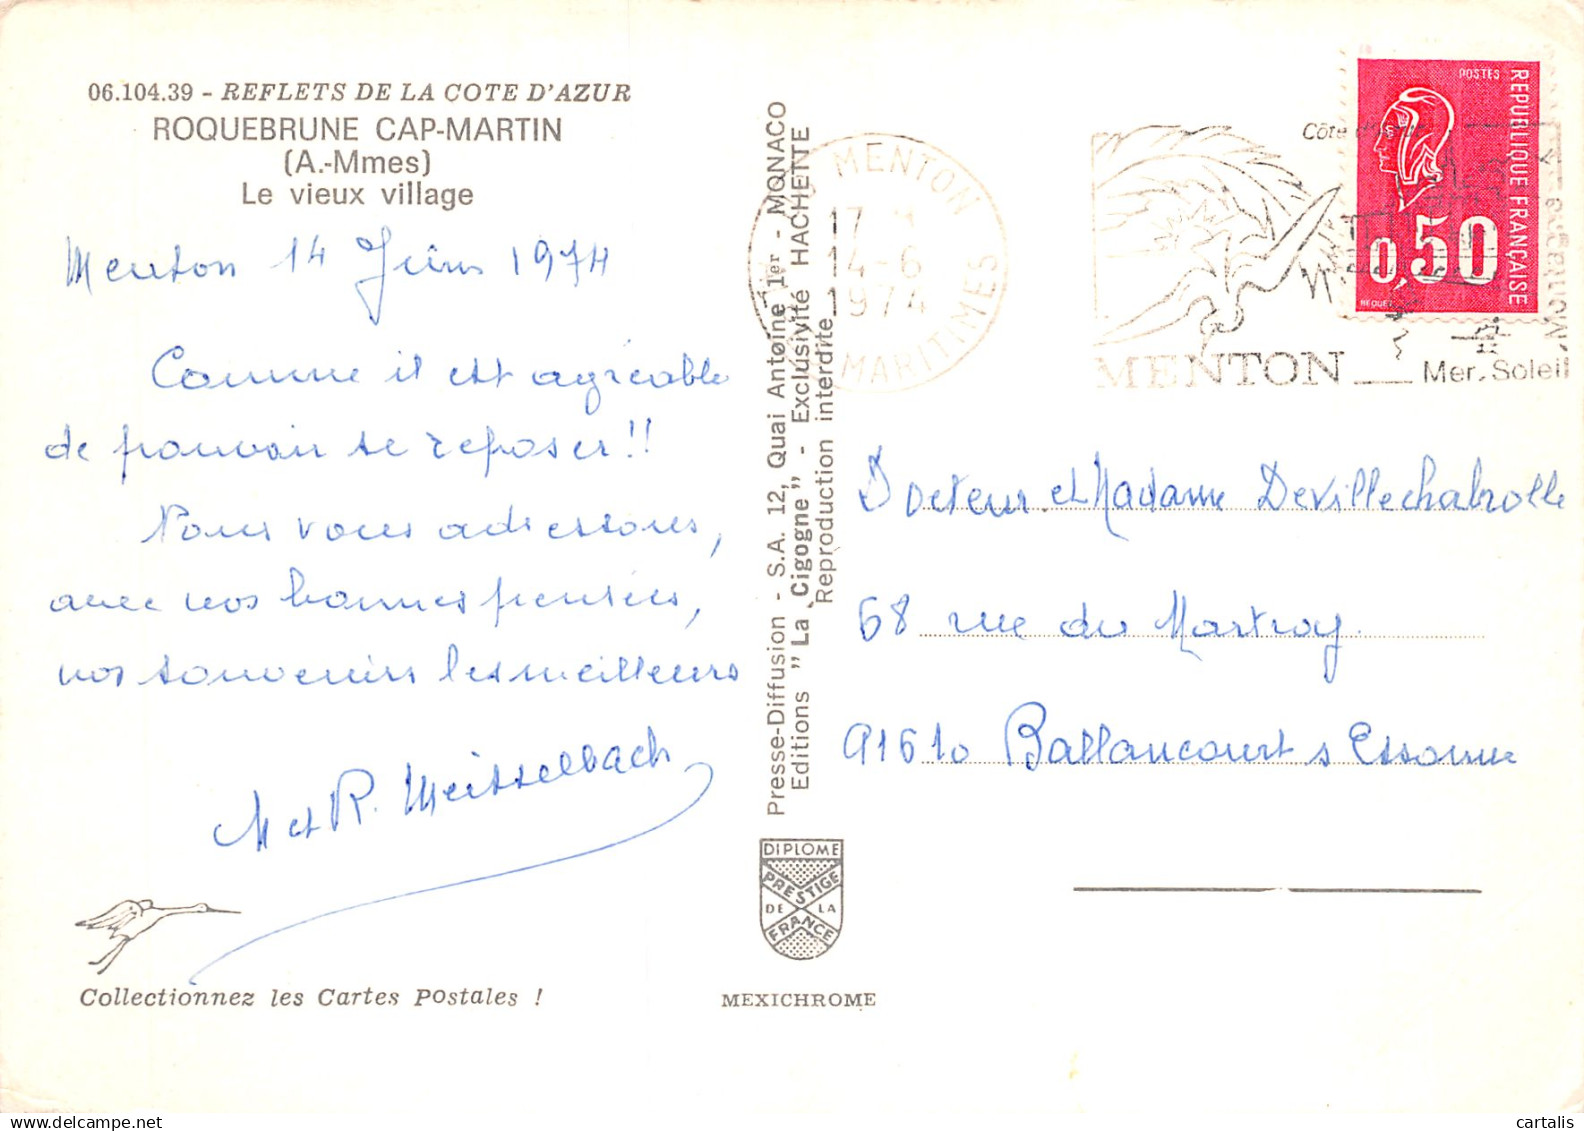 06.104.39 - REFLETS DE LA COTE D'AZUR
ROQUEBRUNE CAP-MARTIN
(A.-Mmes)
Le vieux village
Menton 14 Juin 1974
Comme il est agréable
de pouvoir se reposer!!
Nous vous adressons,
avec nos bonnes pensées,
nos souvenirs les meilleurs
M et R. Meisselbach
Collectionnez les Cartes Postales !
Presse-Diffusion - S.A. 12, Quai Antoine 1er - MONACO
Editions "La Cigogne" - Exclusivité HACHETTE
Reproduction interdite
DIPLOME
PRESTIGE
DE LA
FRANCE
MEXICHROME
MENTON
14-6
1974
MARITIMES
Côte
MENTON
Mer. Soleil
POSTES
REPUBLIQUE FRANÇAISE
0,50
BEQUET
Docteur et Madame Devillechabrolle
68 rue du Martroy
91610 Ballancourt s Essonne
cartalis